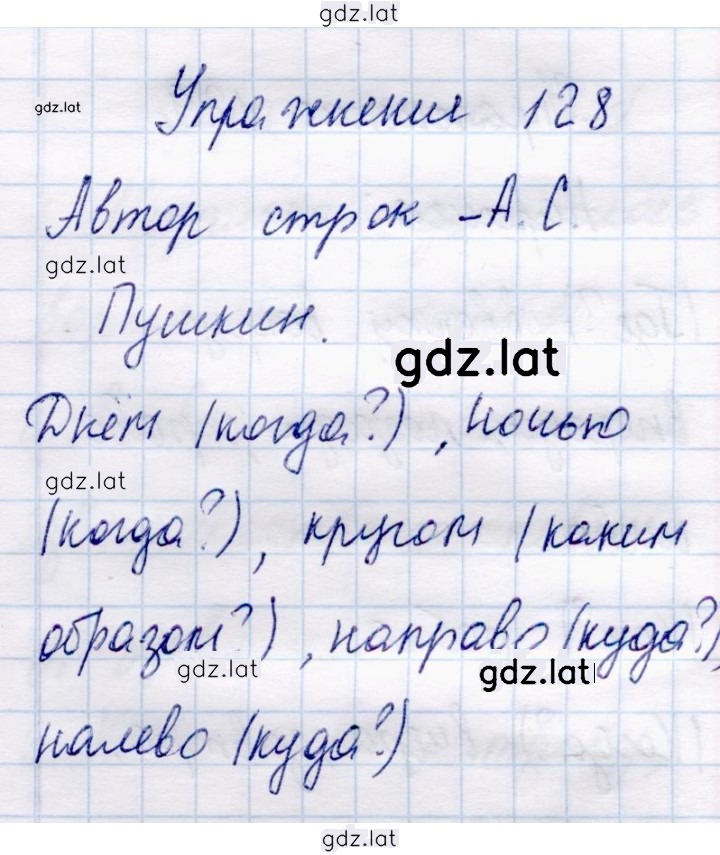 gdz.lat
gdz.lat
Упражнение 128
Автор строк - А. С.
gdz.lat
Пушкин.
gdz.lat
Днём (когда?), ночью
gdz.lat
(когда?), кругом (каким
образом?), направо (куда?),
gdz.lat
gdz.lat
налево (куда?)
gdz.lat